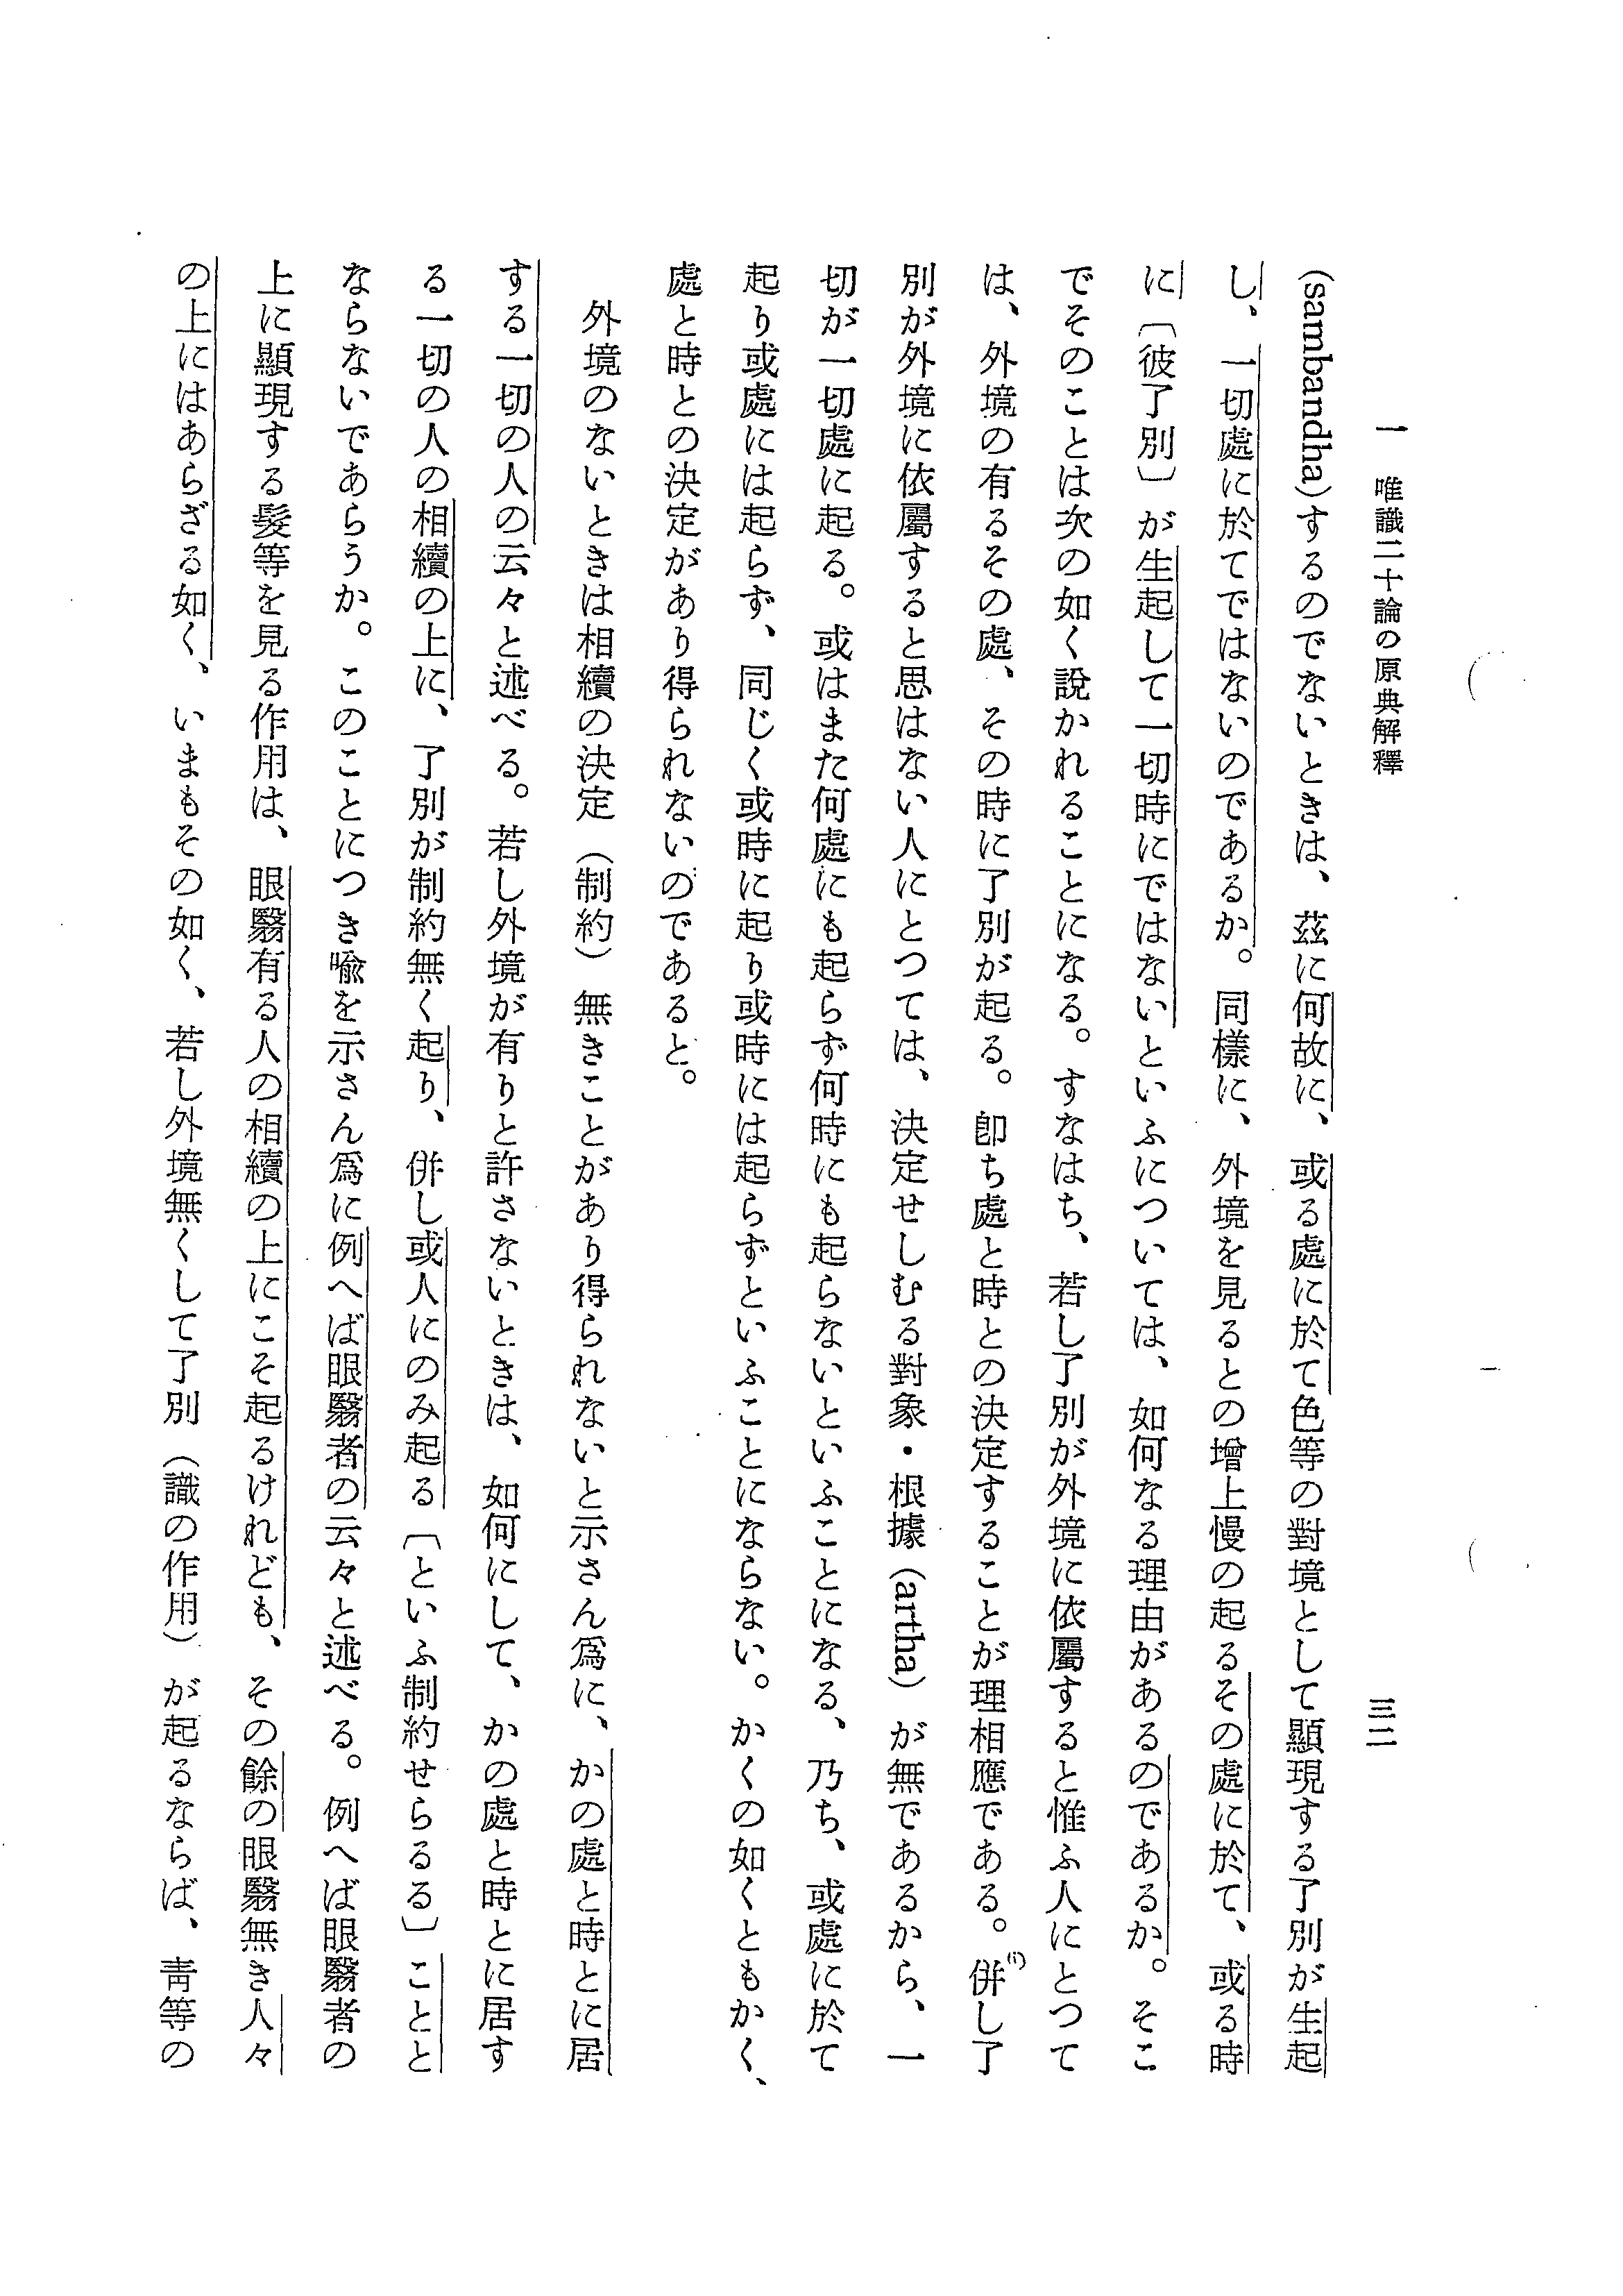 一　唯識二十論の原典解釋
三二
(sambandha)するのでないときは、茲に何故に、或る處に於て色等の對境として顯現する了別が生起
し、一切處に於てではないのであるか。同樣に、外境を見るとの增上慢の起るその處に於て、或る時
に〔彼了別〕が生起して一切時にではないといふについては、如何なる理由があるのであるか。そこ
でそのことは次の如く說かれることになる。すなはち、若し了別が外境に依屬すると惟ふ人にとつて
は、外境の有るその處、その時に了別が起る。卽ち處と時との決定することが理相應である。併(1)し了
別が外境に依屬すると思はない人にとつては、決定せしむる對象・根據(artha)が無であるから、一
切が一切處に起る。或はまた何處にも起らず何時にも起らないといふことになる、乃ち、或處に於て
起り或處には起らず、同じく或時に起り或時には起らずといふことにならない。かくの如くともかく、
處と時との決定があり得られないのであると。
外境のないときは相續の決定（制約）無きことがあり得られないと示さん爲に、かの處と時とに居
する一切の人の云々と述べる。若し外境が有りと許さないときは、如何にして、かの處と時とに居す
る一切の人の相續の上に、了別が制約無く起り、併し或人にのみ起る〔といふ制約せらるる〕ことと
ならないであらうか。このことにつき喩を示さん爲に例へば眼翳者の云々と述べる。例へば眼翳者の
上に顯現する髮等を見る作用は、眼翳有る人の相續の上にこそ起るけれども、その餘の眼翳無き人々
の上にはあらざる如く、いまもその如く、若し外境無くして了別（識の作用）が起るならば、靑等の